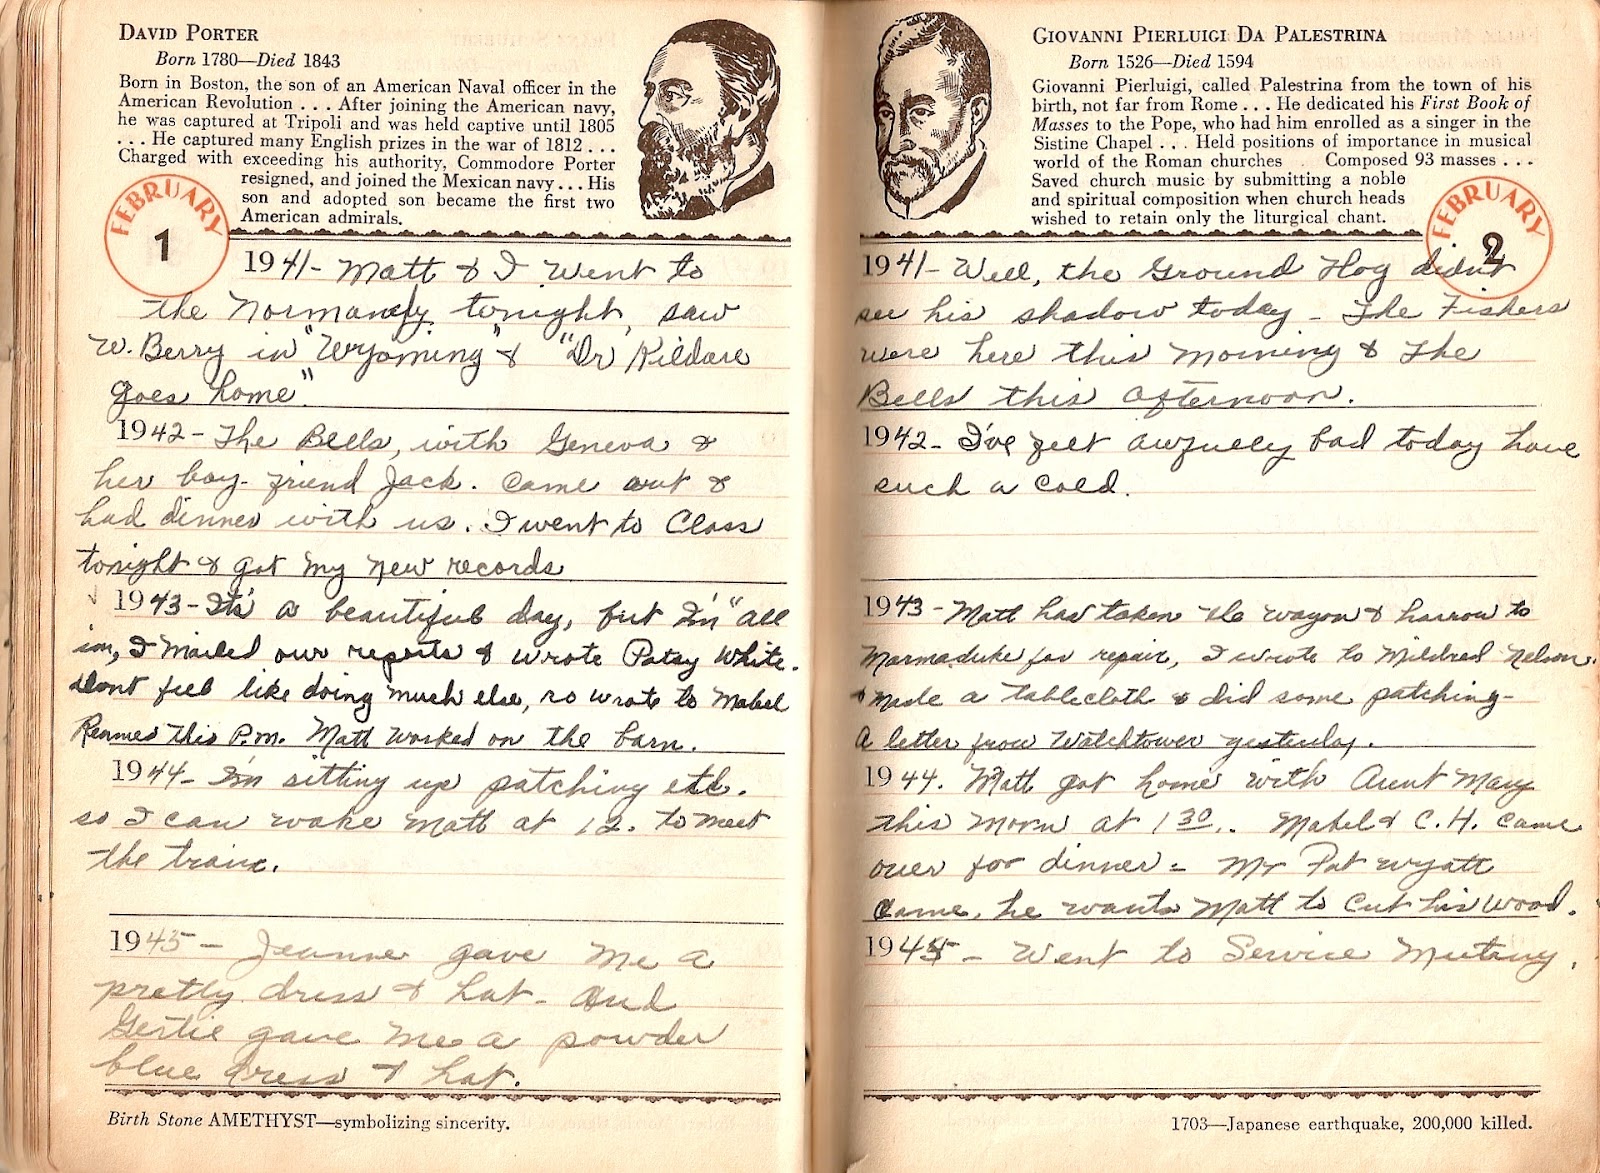 DAVID PORTER
Born 1780—Died 1843
Born in Boston, the son of an American Naval officer in the
American Revolution . . . After joining the American navy,
he was captured at Tripoli and was held captive until 1805
. . . He captured many English prizes in the war of 1812 . . .
Charged with exceeding his authority, Commodore Porter
resigned, and joined the Mexican navy . . . His
son and adopted son became the first two
American admirals.
FEBRUARY
1
1941- Matt & I went to
the Normandy tonight, saw
W. Berry in "Wyoming" & "Dr Kildare
goes home"
1942- The Bells, with Geneva &
her boy-friend Jack. Came out &
had dinner with us. I went to Class
tonight & got my new records
1943- It's a beautiful day, but I'm "all
in, I mailed our reports & wrote Patsy White.
dont feel like doing much else, so wrote to Mabel
Reames this P.m. Matt worked on the barn.
1944- I'm sitting up patching etc.
so I can wake Matt at 12. to meet
the train.
1945- Jeanne gave me a
pretty dress & hat- and
Gertie gave me a powder
blue dress & hat.
Birth Stone AMETHYST—symbolizing sincerity.
GIOVANNI PIERLUIGI DA PALESTRINA
Born 1526—Died 1594
Giovanni Pierluigi, called Palestrina from the town of his
birth, not far from Rome . . . He dedicated his First Book of
Masses to the Pope, who had him enrolled as a singer in the
Sistine Chapel . . . Held positions of importance in musical
world of the Roman churches . Composed 93 masses . . .
Saved church music by submitting a noble
and spiritual composition when church heads
wished to retain only the liturgical chant.
FEBRUARY
2
1941- Well, the Ground Hog didn't
see his shadow today - The Fishers
were here this morning & The
Bells this afternoon.
1942- I've felt awfully bad today have
such a cold.
1943- Matt has taken the wagon & harrow to
Marmaduke for repair, I wrote to Mildred Nelson.
& made a tablecloth & did some patching-
A letter from Watchtower yesterday.
1944. Matt got home with Aunt Mary
this morn at 1 30.. Mabel & C.H. came
over for dinner - Mr Pat Wyatt
came, he wants Matt to cut his wood.
1945- Went to Service Meeting.
1703—Japanese earthquake, 200,000 killed.